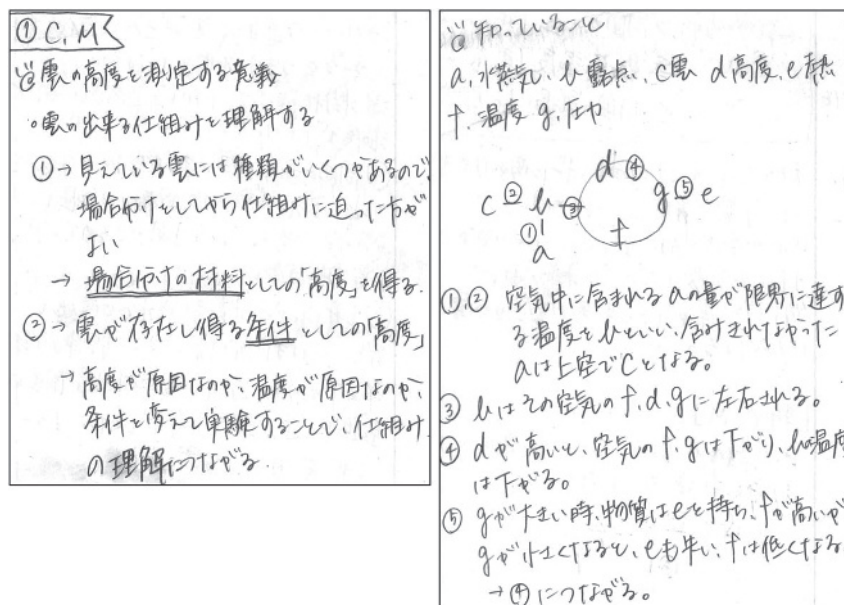 ① C.M
雲の高度を測定する意義
・雲の出来る仕組みを理解する
①→見えている雲には種類がいくつかあるので、
場合分けをしてから仕組みに迫った方が
よい
→ 場合分けの材料としての「高度」を得る.
②→雲が存在し得る条件としての「高度」
→高度が原因なのか、温度が原因なのか、
条件を変えて実験することで、仕組み
の理解につながる
知っていること
a.水蒸気、b 露点、c雲 d 高度、e.熱
f.温度 g.圧力
d ④
c ② b ③ g ⑤ e
① f
a
①,② 空気中に含まれるaの量が限界に達す
る温度をbといい、含みきれなかった
aは上空でcとなる。
③ bはその空気のf,d,gに左右される。
④ dが高いと、空気のf,gは下がり、b温度
は下がる。
⑤ gが大きい時、物質はeを持ち、fが高いが
gが小さくなると、eも失い、fは低くなる
→④につながる。